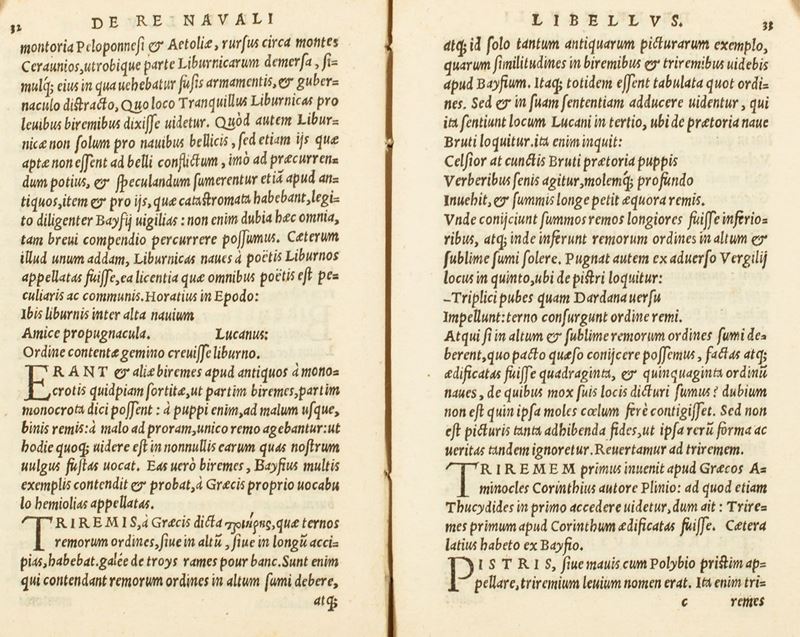 32 DE RE NAVALI
montoria Peloponnesi & Aetoliæ, rursus circa montes
Ceraunios, utrobique parte Liburnicarum demersa, si-
mulq; eius in qua uehebatur fusis armamentis, & guber-
naculo distracto, Quo loco Tranquillus Liburnicas pro
leuibus biremibus dixisse uidetur. Quòd autem Libur-
nicæ non solum pro nauibus bellicis, sed etiam ijs quæ
aptæ non essent ad belli conflictum, imò ad præcurren-
dum potius, & speculandum sumerentur etiã apud an-
tiquos, item & pro ijs, quæ catastromata habebant, legi-
to diligenter Bayfij uigilias: non enim dubia hæc omnia,
tam breui compendio percurrere possumus. Cæterum
illud unum addam, Liburnicas naues à poëtis Liburnos
appellatas fuisse, ea licentia quæ omnibus poëtis est pe-
culiaris ac communis. Horatius in Epodo:
Ibis liburnis inter alta nauium
Amice propugnacula. Lucanus:
Ordine contentæ gemino creuisse liburno.
ERANT & aliæ biremes apud antiquos à mono-
crotis quidpiam sortitæ, ut partim biremes, partim
monocrota dici possent: à puppi enim, ad malum usque,
binis remis: à malo ad proram, unico remo agebantur: ut
hodie quoq; uidere est in nonnullis earum quas nostrum
uulgus fustas uocat. Eas uerò biremes, Bayfius multis
exemplis contendit & probat, à Græcis proprio uocabu
lo hemiolias appellatas.
TRIREMIS, à Græcis dicta τριήρης, quæ ternos
remorum ordines, siue in altũ, siue in longũ acci-
pias, habebat. galée de troys rames pour banc. Sunt enim
qui contendant remorum ordines in altum sumi debere,
atq;
LIBELLVS. 33
atq; id solo tantum antiquarum picturarum exemplo,
quarum similitudines in biremibus & triremibus uidebis
apud Bayfium. Itaq; totidem essent tabulata quot ordi-
nes. Sed & in suam sententiam adducere uidentur, qui
ita sentiunt locum Lucani in tertio, ubi de prætoria naue
Bruti loquitur. ita enim inquit:
Celsior at cunctis Bruti prætoria puppis
Verberibus senis agitur, molemq; profundo
Inuehit, & summis longe petit æquora remis.
Vnde conijciunt summos remos longiores fuisse inferio-
ribus, atq; inde inferunt remorum ordines in altum &
sublime sumi solere. Pugnat autem ex aduerso Vergilij
locus in quinto, ubi de pistri loquitur:
–Triplici pubes quam Dardana uersu
Impellunt: terno consurgunt ordine remi.
Atqui si in altum & sublime remorum ordines sumi de-
berent, quo pacto quæso conijcere possemus, factas atq;
ædificatas fuisse quadraginta, & quinquaginta ordinũ
naues, de quibus mox suis locis dicturi sumus? dubium
non est quin ipsa moles cœlum ferè contigisset. Sed non
est picturis tanta adhibenda fides, ut ipsa rerũ forma ac
ueritas tandem ignoretur. Reuertamur ad triremem.
TRIREMEM primus inuenit apud Græcos A-
minocles Corinthius autore Plinio: ad quod etiam
Thucydides in primo accedere uidetur, dum ait: Trire-
mes primum apud Corinthum ædificatas fuisse. Cætera
latius habeto ex Bayfio.
PISTRIS, siue mauis cum Polybio pristim ap-
pellare, triremium leuium nomen erat. Ita enim tri-
c remes